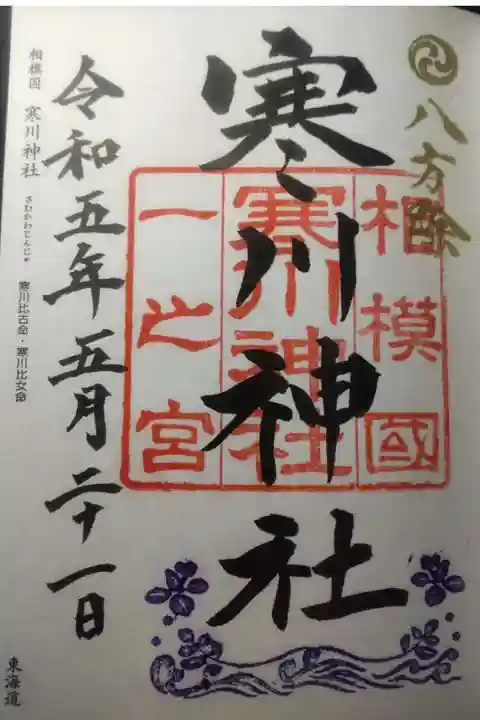 八方除
寒川神社
相模國
寒川神社
一之宮
令和五年五月二十一日
相模国 寒川神社 寒川比古命・寒川比女命
さむかわじんじゃ
東海道